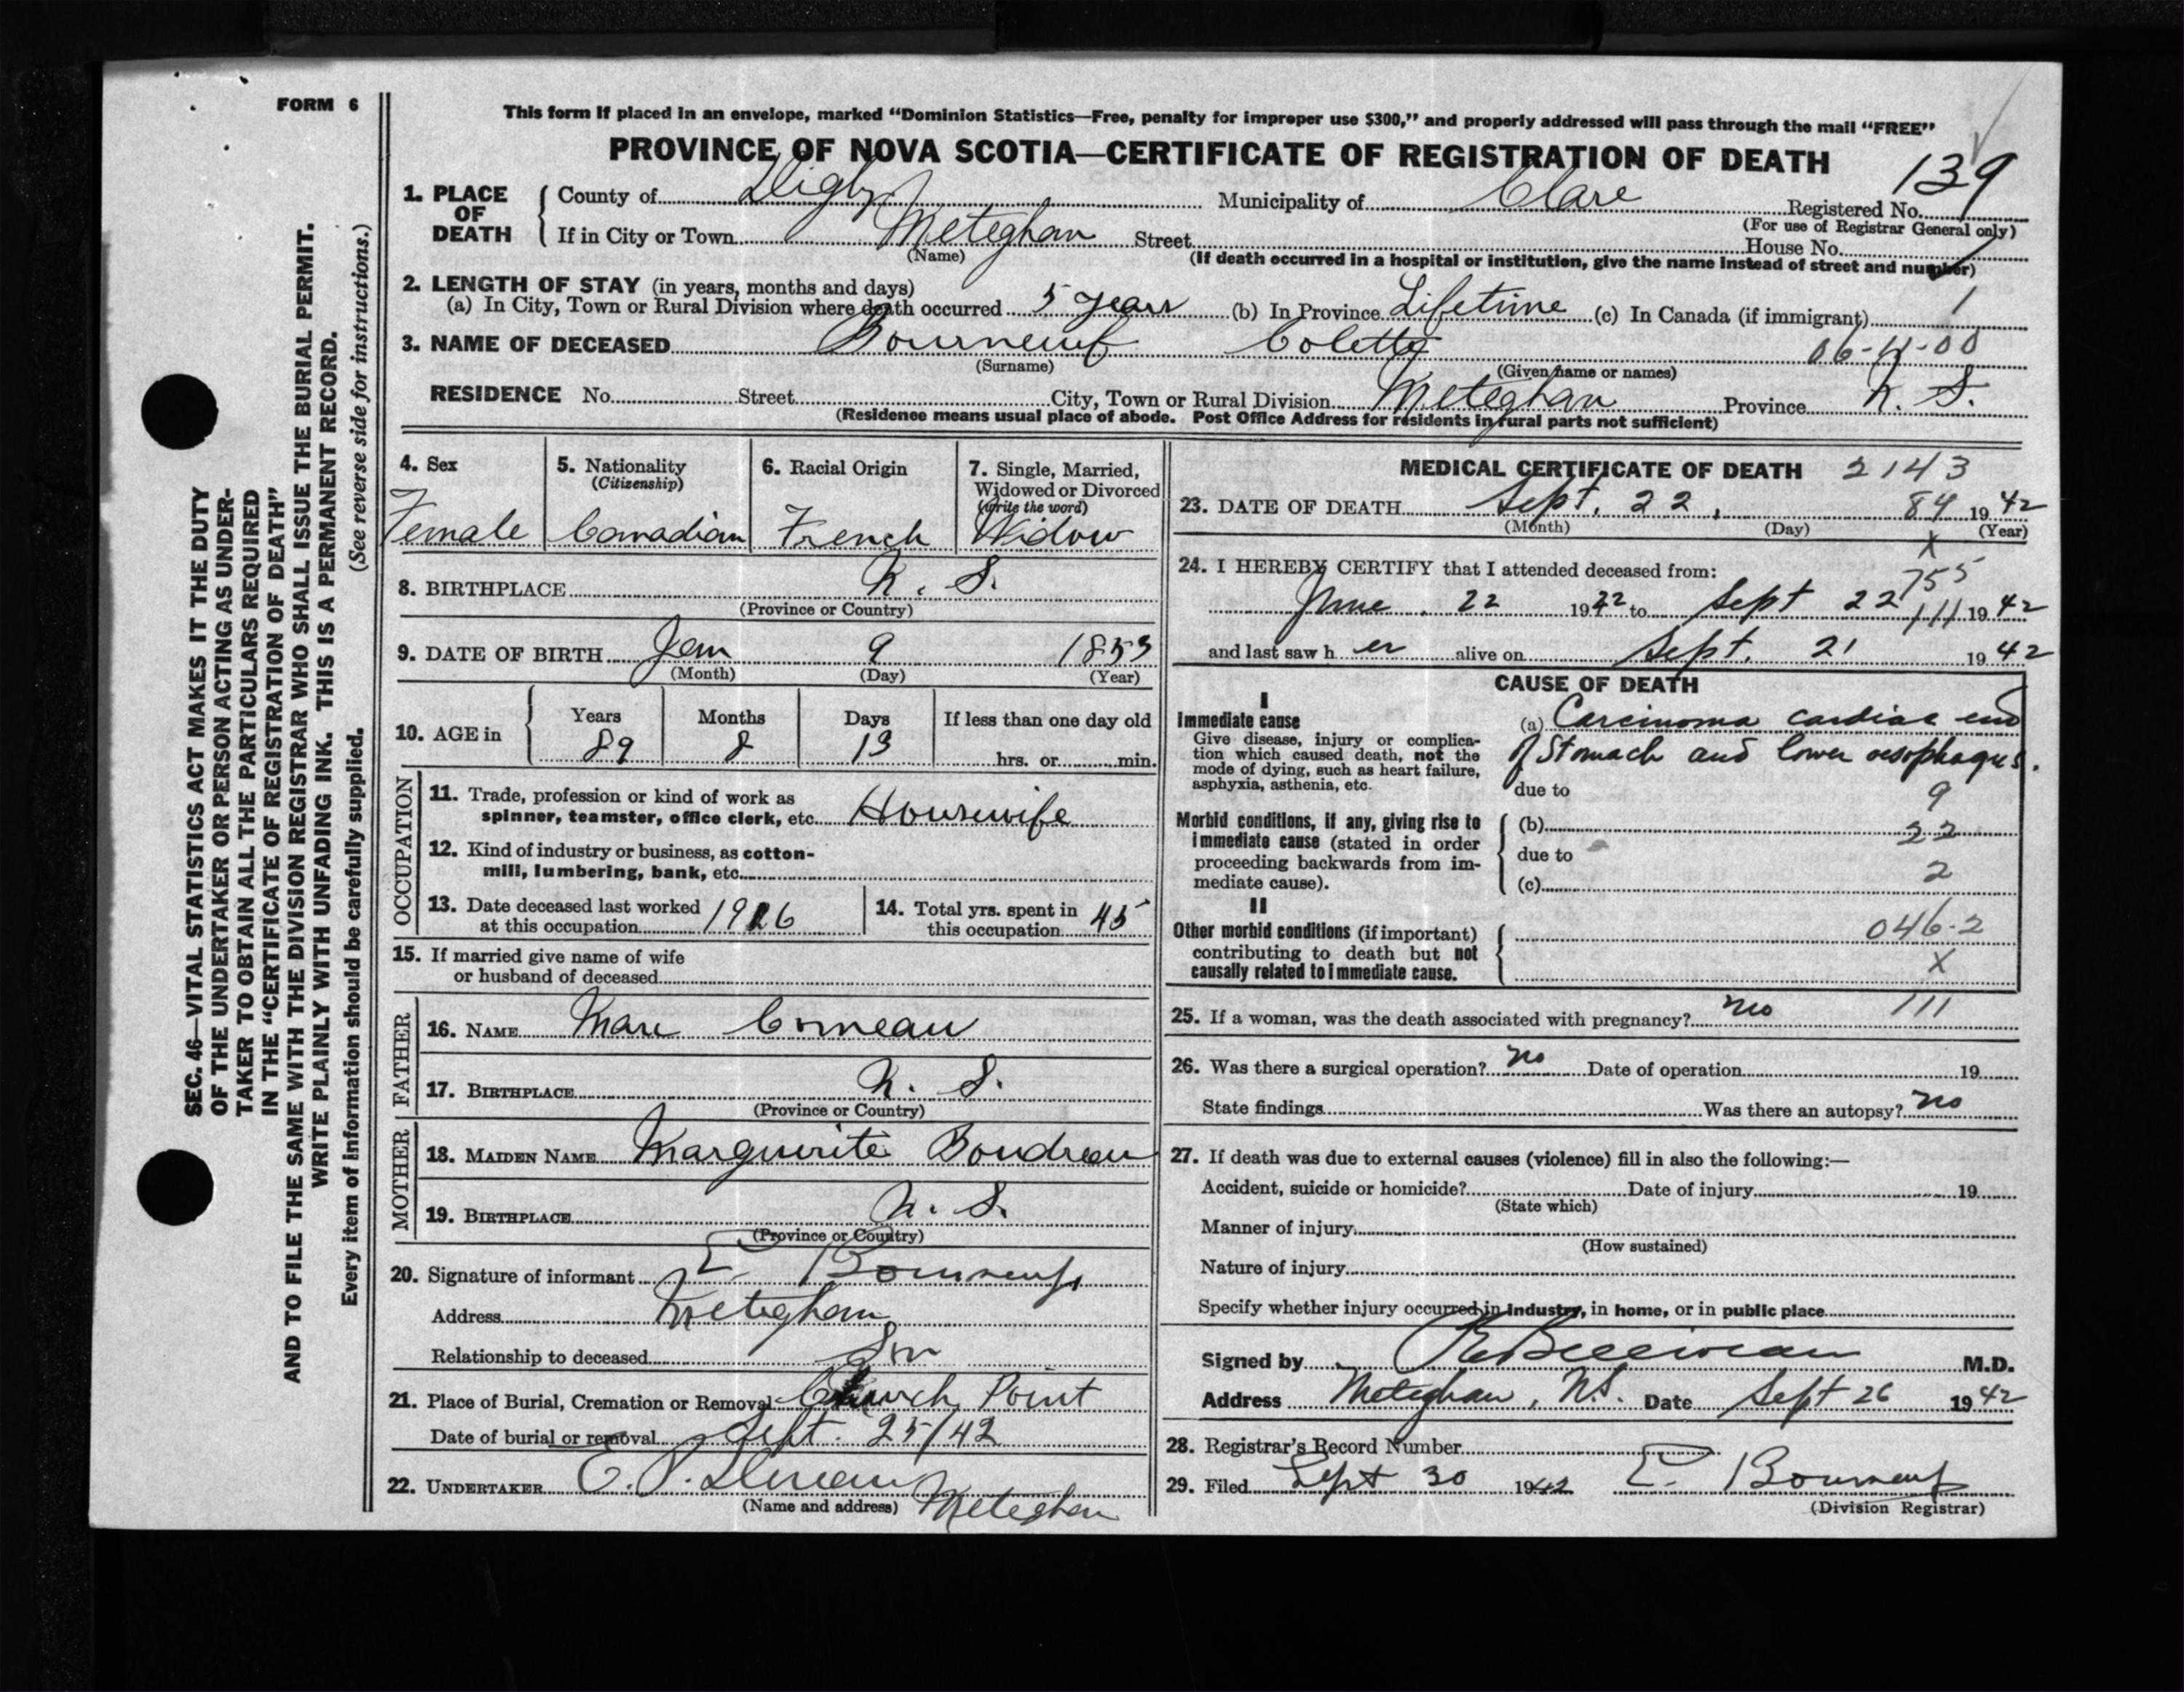 FORM 6
This form if placed in an envelope, marked "Dominion Statistics—Free, penalty for improper use $300," and properly addressed will pass through the mail "FREE"
PROVINCE OF NOVA SCOTIA—CERTIFICATE OF REGISTRATION OF DEATH
139
1. PLACE OF DEATH County of Digby Municipality of Clare Registered No.
(For use of Registrar General only)
If in City or Town Meteghan Street House No.
(Name) (If death occurred in a hospital or institution, give the name instead of street and number)
2. LENGTH OF STAY (in years, months and days)
(a) In City, Town or Rural Division where death occurred 5 years (b) In Province Lifetime (c) In Canada (if immigrant) 1
3. NAME OF DECEASED Bourneuf Colette 06-11-00
(Surname) (Given name or names)
RESIDENCE No. Street City, Town or Rural Division Meteghan Province N. S.
(Residence means usual place of abode. Post Office Address for residents in rural parts not sufficient)
SEC. 46—VITAL STATISTICS ACT MAKES IT THE DUTY
OF THE UNDERTAKER OR PERSON ACTING AS UNDER-
TAKER TO OBTAIN ALL THE PARTICULARS REQUIRED
IN THE "CERTIFICATE OF REGISTRATION OF DEATH"
AND TO FILE THE SAME WITH THE DIVISION REGISTRAR WHO SHALL ISSUE THE BURIAL PERMIT.
WRITE PLAINLY WITH UNFADING INK. THIS IS A PERMANENT RECORD.
Every item of information should be carefully supplied. (See reverse side for instructions.)
4. Sex
Female
5. Nationality
(Citizenship)
Canadian
6. Racial Origin
French
7. Single, Married,
Widowed or Divorced
(write the word)
Widow
8. BIRTHPLACE N. S.
(Province or Country)
9. DATE OF BIRTH Jan 9 1853
(Month) (Day) (Year)
10. AGE in Years Months Days If less than one day old
89 8 13 hrs. or min.
OCCUPATION
11. Trade, profession or kind of work as
spinner, teamster, office clerk, etc. Housewife
12. Kind of industry or business, as cotton-
mill, lumbering, bank, etc.
13. Date deceased last worked
at this occupation 1926
14. Total yrs. spent in
this occupation 45
15. If married give name of wife
or husband of deceased
FATHER
16. NAME Marc Comeau
17. BIRTHPLACE N. S.
(Province or Country)
MOTHER
18. MAIDEN NAME Marguerite Boudreau
19. BIRTHPLACE N. S.
(Province or Country)
20. Signature of informant E. Bourneuf
Address Meteghan
Relationship to deceased Son
21. Place of Burial, Cremation or Removal Church Point
Date of burial or removal Sept. 25/42
22. UNDERTAKER E. P.
(Name and address) Meteghan
MEDICAL CERTIFICATE OF DEATH 2143
23. DATE OF DEATH Sept. 22, 84 1942
(Month) (Day) (Year)
X
24. I HEREBY CERTIFY that I attended deceased from:
755
June 22 1942 to Sept 22 111 1942
and last saw her alive on Sept. 21 1942
CAUSE OF DEATH
I
Immediate cause
Give disease, injury or complica-
tion which caused death, not the
mode of dying, such as heart failure,
asphyxia, asthenia, etc.
(a) Carcinoma cardiac end
of Stomach and lower oesophagus.
due to 9
Morbid conditions, if any, giving rise to
immediate cause (stated in order
proceeding backwards from im-
mediate cause).
(b) 22
due to
(c) 2
II
Other morbid conditions (if important)
contributing to death but not
causally related to immediate cause.
046-2
X
25. If a woman, was the death associated with pregnancy? no 111
26. Was there a surgical operation? no Date of operation 19
State findings Was there an autopsy? no
27. If death was due to external causes (violence) fill in also the following:—
Accident, suicide or homicide? Date of injury 19
(State which)
Manner of injury
(How sustained)
Nature of injury
Specify whether injury occurred in industry, in home, or in public place
Signed by M.D.
Address Meteghan, N.S. Date Sept 26 1942
28. Registrar's Record Number
29. Filed Sept 30 1942 E. Bourneuf
(Division Registrar)